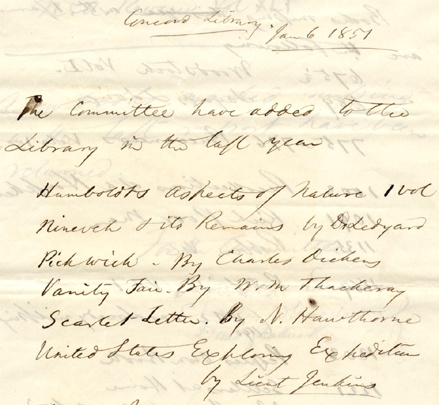 Concord Library. Jan 6 1851
The Committee have added to the
Library in the last year
Humboldts Aspects of Nature 1 vol
Nineveh & its Remains by Dr Ledyard
Pickwick - By Charles Dickens
Vanity Fair. By Wm Thackeray
Scarlet Letter. By N. Hawthorne
United States Exploring Expedition
by Lieut Jenkins